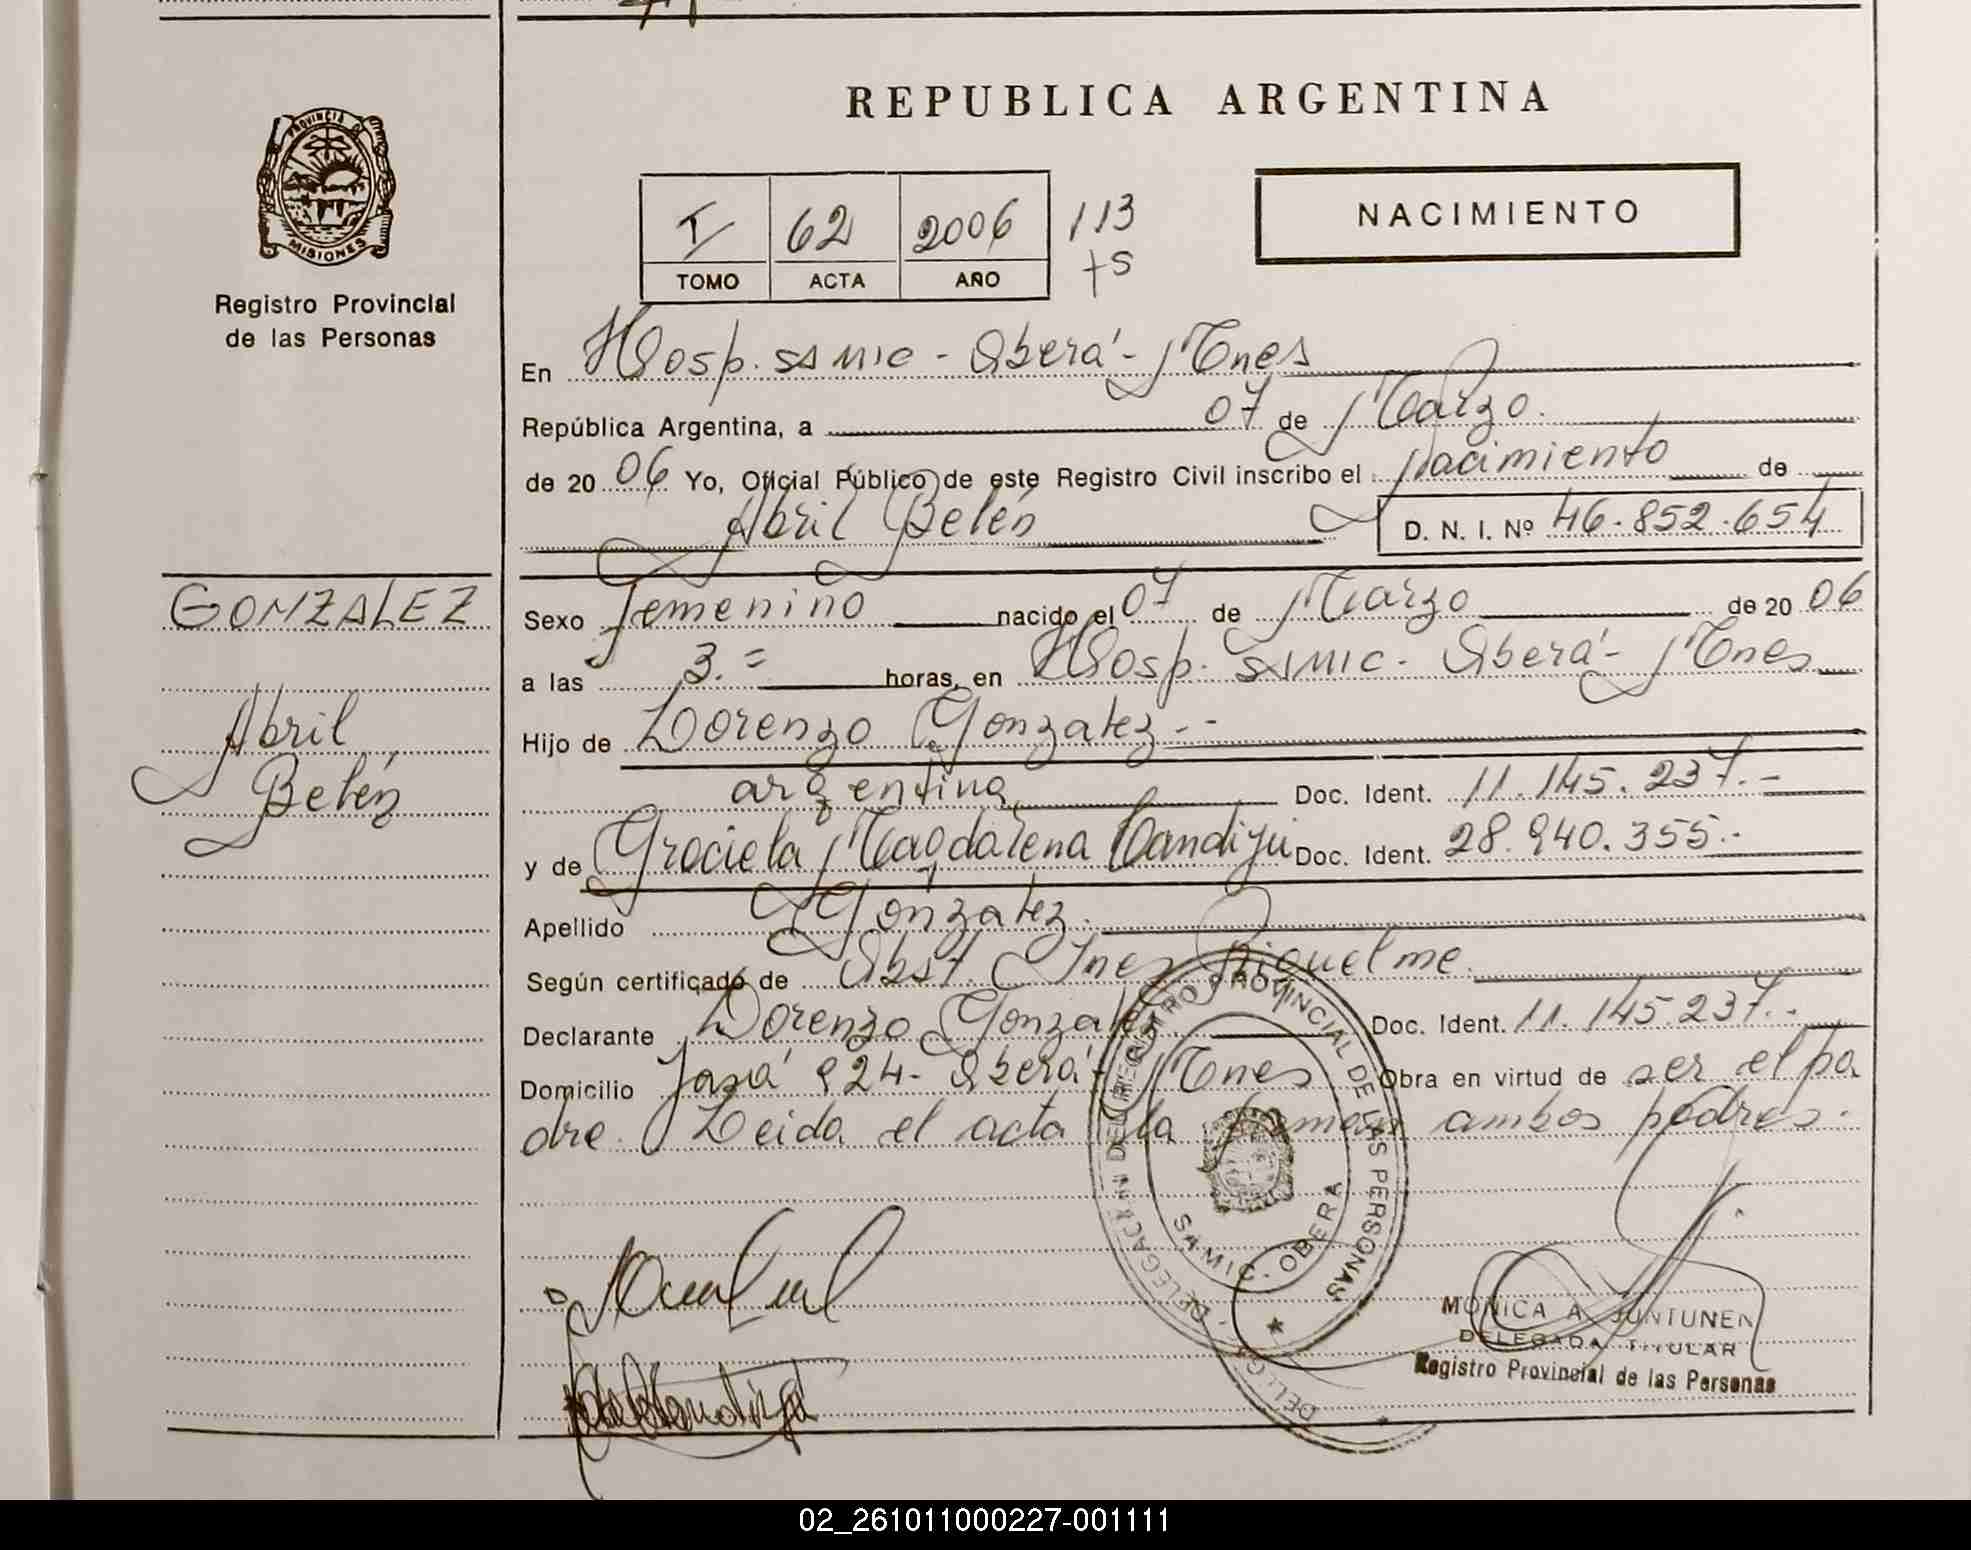 REPUBLICA ARGENTINA
PROVINCIA D MISIONES
Registro Provincial
de las Personas
I 62 2006 113
TOMO ACTA AÑO +5
NACIMIENTO
En Hosp. SAMIC - Oberá - Mnes
República Argentina, a 07 de Marzo.
de 20 06 Yo, Oficial Público de este Registro Civil inscribo el Nacimiento de
Abril Belén D. N. I. Nº 46.852.654
GONZALEZ
Abril
Belén
Sexo Femenino nacido el 07 de Marzo de 20 06
a las 3.= horas, en Hosp. SAMIC. Oberá - Mnes
Hijo de Lorenzo Gonzalez.-
argentina Doc. Ident. 11.145.237.-
y de Graciela Magdalena Candizu Doc. Ident. 28.940.355.-
Apellido González.
Según certificado de Obst. Ines Riquelme.
Declarante Lorenzo Gonzalez Doc. Ident. 11.145.237.-
Domicilio 924 - Oberá - Mnes Obra en virtud de ser el pa
dre. Leida el acta la firman ambos padres.
DELEGACI N DEL REGISTRO PROVINCIAL DE LAS PERSONAS
SAMIC - OBERA
MONICA A. JUNTUNEN
DELEGADA TITULAR
Registro Provincial de las Personas
02_261011000227-001111